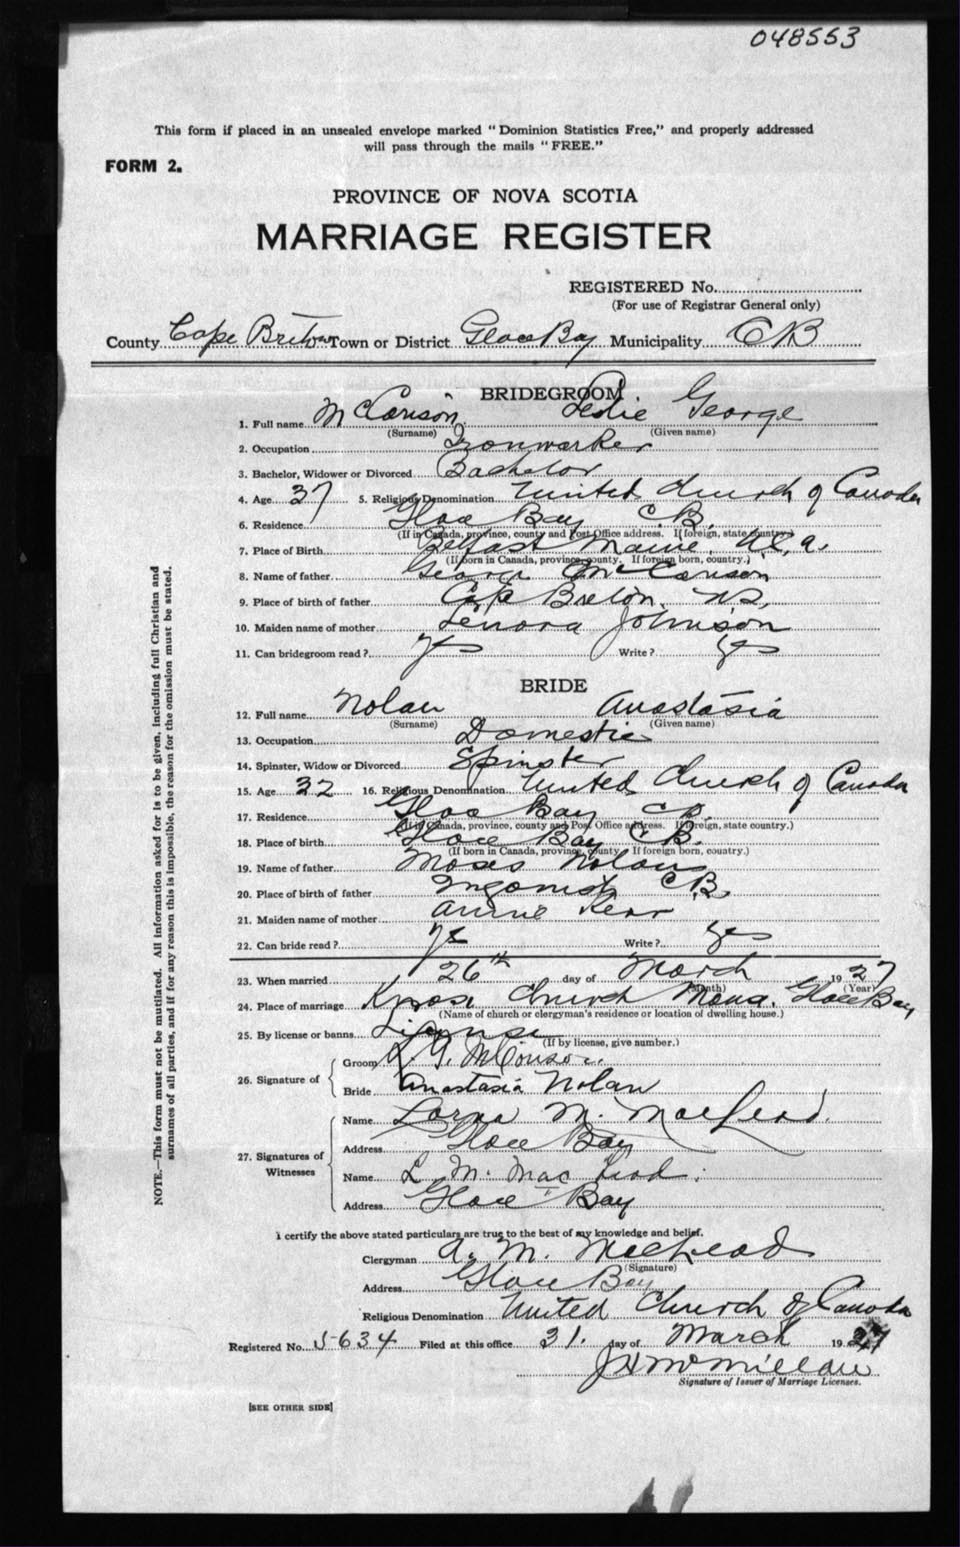 048553
This form if placed in an unsealed envelope marked "Dominion Statistics Free," and properly addressed
will pass through the mails "FREE."
FORM 2.
PROVINCE OF NOVA SCOTIA
MARRIAGE REGISTER
REGISTERED No.
(For use of Registrar General only)
County Cape Breton Town or District Glace Bay Municipality CB
BRIDEGROOM
1. Full name Leslie George
(Surname) (Given name)
2. Occupation Ironworker
3. Bachelor, Widower or Divorced Bachelor
4. Age 37 5. Religious Denomination United Church of Canada
6. Residence Glace Bay C.B.
(If in Canada, province, county and Post Office address. If foreign, state country.)
7. Place of Birth Belfast Maine, U.S.a.
(If born in Canada, province, county. If foreign born, country.)
8. Name of father George
9. Place of birth of father Cape Breton, N.S.
10. Maiden name of mother Lenora Johnson
11. Can bridegroom read? yes Write? yes
BRIDE
12. Full name Nolan Anastasia
(Surname) (Given name)
13. Occupation Domestic
14. Spinster, Widow or Divorced Spinster
15. Age 32 16. Religious Denomination United Church of Canada
17. Residence Glace Bay C.B.
(If in Canada, province, county and Post Office address. If foreign, state country.)
18. Place of birth Glace Bay C.B.
(If born in Canada, province, county. If foreign born, country.)
19. Name of father Moses Nolan
20. Place of birth of father Ingonish C.B.
21. Maiden name of mother Annie Kerr
22. Can bride read? yes Write? yes
23. When married 26th day of March 1927
(Month) (Year)
24. Place of marriage Knox Church Manse, Glace Bay
(Name of church or clergyman's residence or location of dwelling house.)
25. By license or banns License
(If by license, give number.)
26. Signature of
Groom L. G.
Bride Anastasia Nolan
27. Signatures of Witnesses
Name Lorna M. MacLeod.
Address Glace Bay
Name L M. MacLeod.
Address Glace Bay
I certify the above stated particulars are true to the best of my knowledge and belief.
Clergyman A. M. MacLeod
(Signature)
Address Glace Bay
Religious Denomination United Church of Canada
Registered No. 5634 Filed at this office 31. day of March 1927
J H McMillan
Signature of Issuer of Marriage Licenses.
[SEE OTHER SIDE]
NOTE.—This form must not be mutilated. All information asked for is to be given, including full Christian and
surnames of all parties, and if for any reason this is impossible, the reason for the omission must be stated.